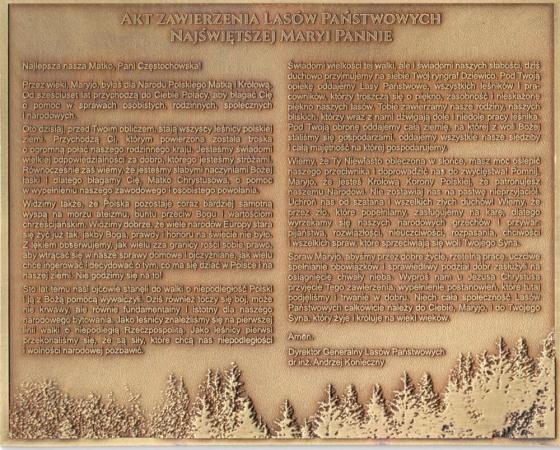 Akt Zawierzenia Lasów Państwowych
Najświętszej Maryi Pannie
Najlepsza nasza Matko, Pani Częstochowska!
Przez wieki, Maryjo, byłaś dla Narodu Polskiego Matką i Królową.
Od sześciuset lat przychodzą do Ciebie Polacy, aby błagać Cię
o pomoc w sprawach osobistych, rodzinnych, społecznych
i narodowych.
Oto dzisiaj, przed Twoim obliczem, stają wszyscy leśnicy polskiej
ziemi. Przychodzą Ci, którym powierzona została troska
o ogromną połać naszego rodzinnego kraju. Jesteśmy świadomi
wielkiej odpowiedzialności za dobro, którego jesteśmy strażami.
Równocześnie zaś wiemy, że jesteśmy słabymi naczyniami Bożej
łaski i dlatego błagamy Cię, Matko Chrystusowa, o pomoc
w wypełnieniu naszego zawodowego i osobistego powołania.
Widzimy także, że Polska pozostaje coraz bardziej samotną
wyspą na morzu ateizmu, buntu przeciw Bogu i wartościom
chrześcijańskim. Widzimy dobrze, że wiele narodów Europy stara
się żyć już tak, jakby Boga, prawdy i honoru na świecie nie było.
Z lękiem obserwujemy, jak wielu zza granicy rości sobie prawo,
aby wtrącać się w nasze sprawy domowe i ojczyźniane, jak wielu
chce ingerować i decydować o tym, co ma się dziać w Polsce i na
naszej ziemi. Nie godzimy się na to!
Sto lat temu nasi ojcowie stanęli do walki o niepodległość Polski
i ją z Bożą pomocą wywalczyli. Dziś również toczy się bój, może
nie krwawy, ale równie fundamentalny i istotny dla naszego
narodowego bytowania. Jako leśnicy znaleźliśmy się na pierwszej
linii walki o niepodległą Rzeczpospolitą. Jako leśnicy pierwsi
przekonaliśmy się, że są siły, które chcą nas niepodległości
i wolności narodowej pozbawić.
Świadomi wielkości tej walki, ale i świadomi naszych słabości, dziś
duchowo przyjmujemy na siebie Twój ryngraf Dziewico. Pod Twoją
opiekę oddajemy Lasy Państwowe, wszystkich leśników i pra-
cowników, którzy troszczą się o piękno, zasobność i nieskażone
piękno naszych lasów. Tobie zawierzamy nasze rodziny, naszych
bliskich, którzy wraz z nami dźwigają dole i niedole pracy leśnika.
Pod Twoją obronę oddajemy całą ziemię, na której z woli Bożej
staliśmy się gospodarzami, oddajemy wszystkie nasze siedziby
i całą majętność na której gospodarujemy.
Wiemy, że Ty Niewiasto obleczona w słońce, masz moc oślepić
naszego przeciwnika i doprowadzić nas do zwycięstwa! Pomnij,
Maryjo, że jesteś Królową Korony Polskiej, że patronujesz
naszemu Narodowi. Nie zostawiaj nas na pastwę nieprzyjaciół.
Uchroń nas od szatana i wszelkich złych duchów! Wiemy, że
przez zło, które popełniamy, zasługujemy na karę, dlatego
wyrzekamy się naszych narodowych grzechów i przywar:
pijaństwa, gnuśności, nieuczciwości, rozpasania, chciwości
wszelkich spraw, które sprzeciwiają się woli Twojego Syna.
Spraw Maryjo, abyśmy przez dobre życie, rzetelną pracę, uczciwe
spełnianie obowiązków i sprawiedliwy podział dóbr zasłużyli na
osiągnięcie chwały nieba. Wyproś nam u Jezusa Chrystusa
przyjęcie Tego zawierzenia, wypełnienie postanowień, które tutaj
podjęliśmy i trwanie w dobru. Niech cała społeczność Lasów
Państwowych całkowicie należy do Ciebie, Maryjo, i do Twojego
Syna, który żyje i króluje na wieki wieków.
Amen.
Dyrektor Generalny Lasów Państwowych
dr inż. Andrzej Konieczny